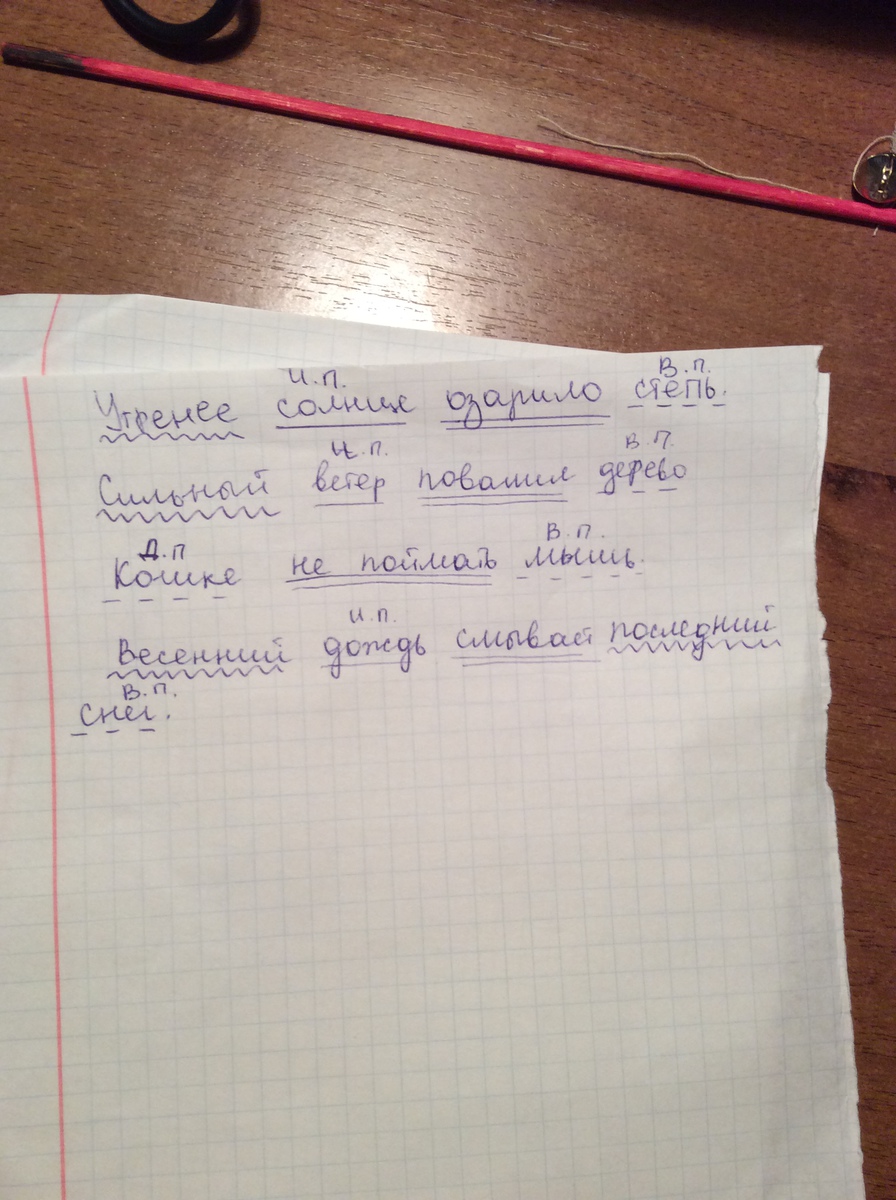 И.П. В.П.
Утренее солнце озарило степь.
И.П. В.П.
Сильный ветер повалил дерево
Д.П В.П.
Кошке не поймать мышь.
И.П.
Весенний дождь смывает последний
В.П.
снег.